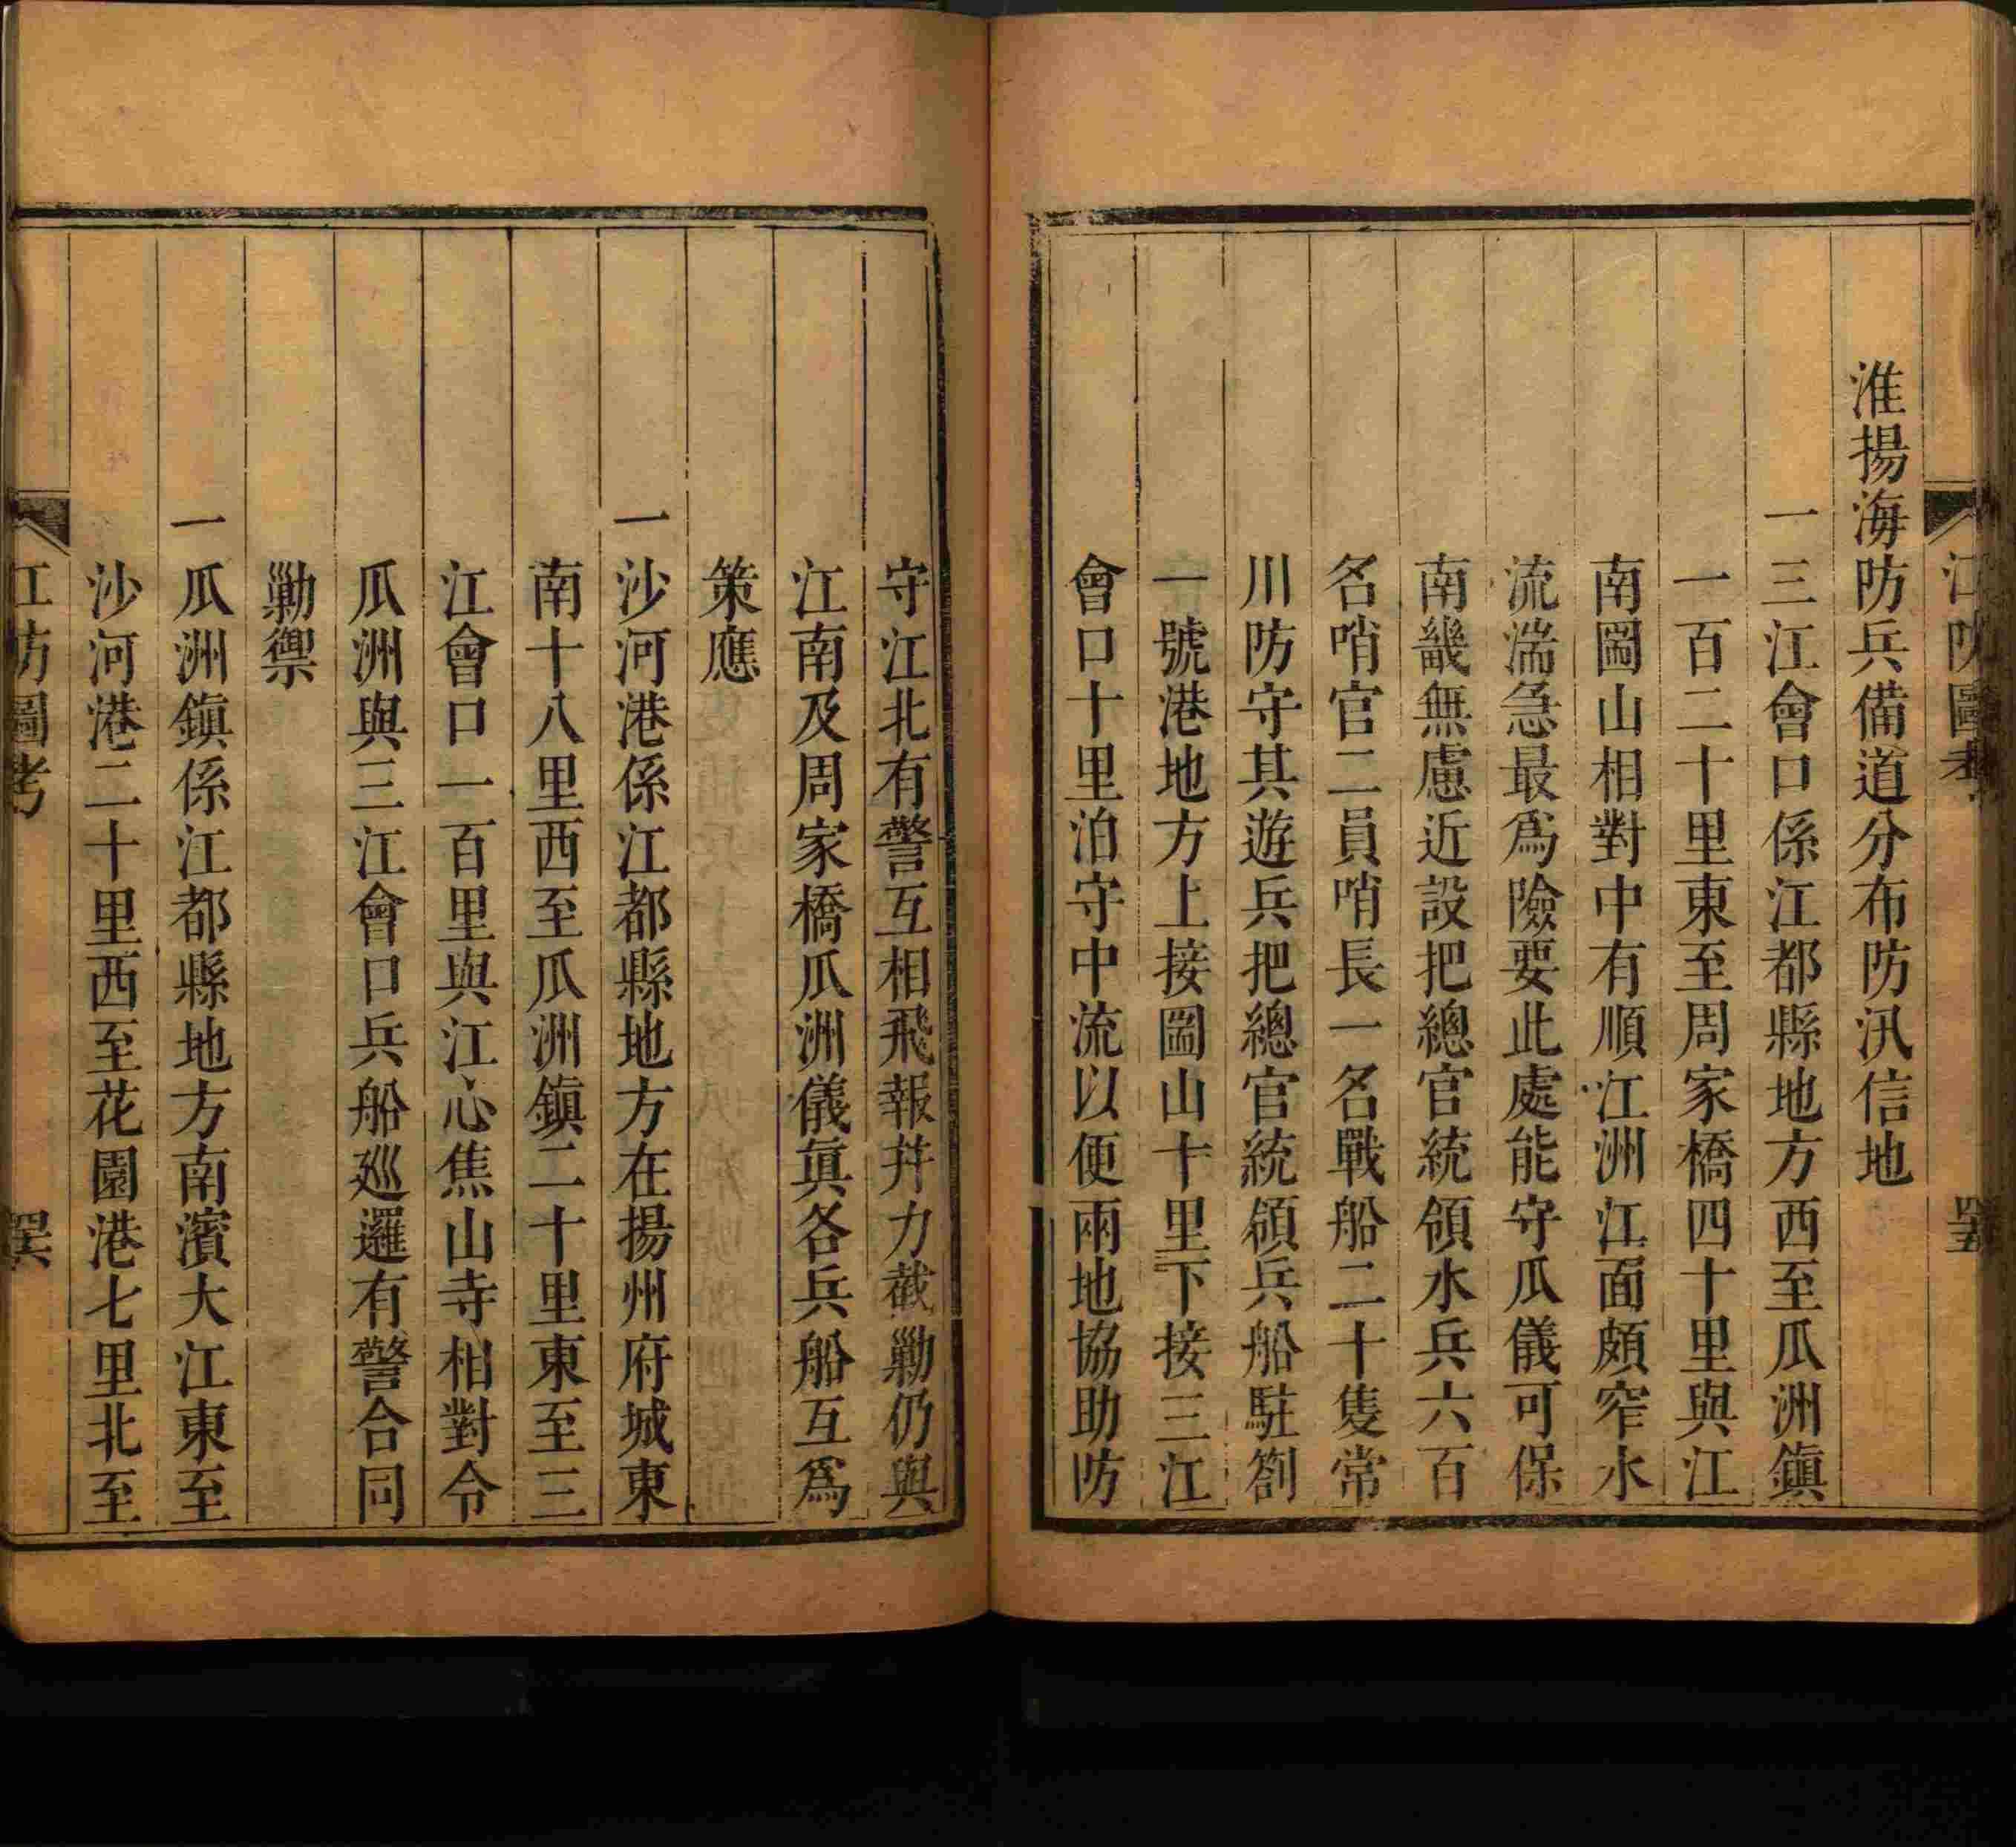 江防圖考
淮揚海防兵備道分布防汛信地
一三江會口係江都縣地方西至瓜洲鎮
一百二十里東至周家橋四十里與江
南圌山相對中有順江洲江面頗窄水
流湍急最爲險要此處能守瓜儀可保
南畿無慮近設把總官統領水兵六百
名哨官二員哨長一名戰船二十隻常
川防守其遊兵把總官統領兵船駐劄
一號港地方上接圌山十里下接三江
會口十里泊守中流以便兩地協助防
守江北有警互相飛報并力截勦仍與
江南及周家橋瓜洲儀眞各兵船互爲
策應
一沙河港係江都縣地方在揚州府城東
南十八里西至瓜洲鎮二十里東至三
江會口一百里與江心焦山寺相對令
瓜洲與三江會口兵船廵邏有警合同
勦禦
一瓜洲鎮係江都縣地方南濱大江東至
沙河港二十里西至花園港七里北至
江防圖考